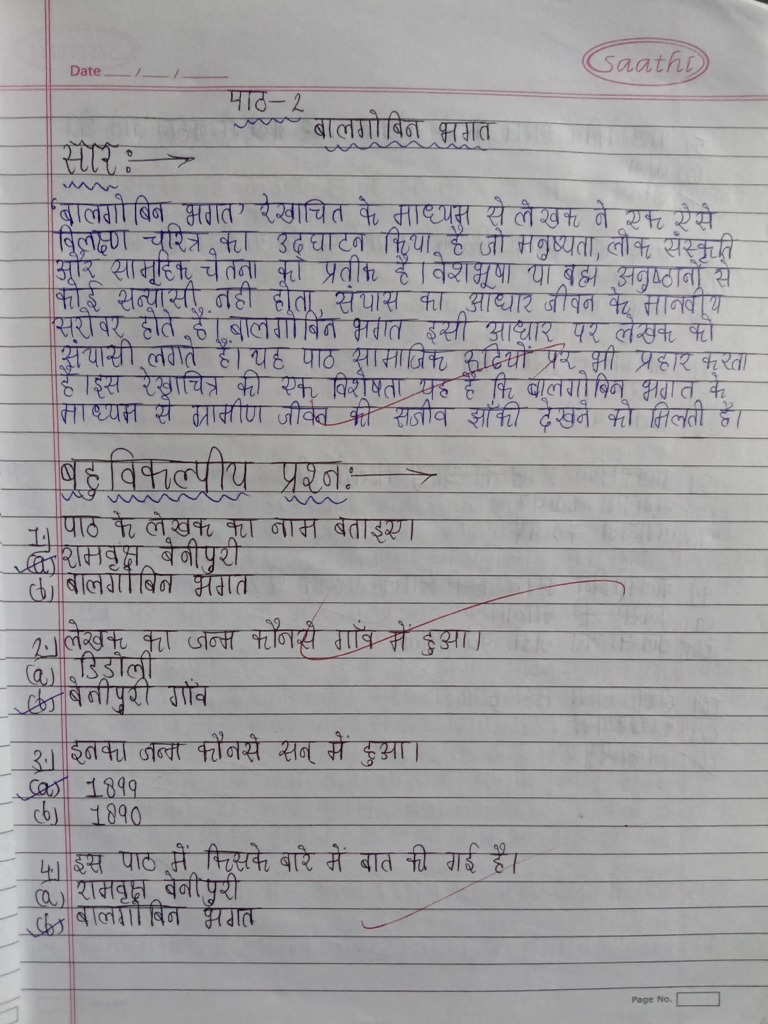 Date __/__/____
Saathi
पाठ-2
बालगोबिन भगत
सार:→
'बालगोबिन भगत' रेखाचित के माध्यम से लेखक ने एक ऐसे
विलक्षण चरित्र का उद्घाटन किया है जो मनुष्यता, लोक संस्कृति
और सामूहिक चेतना का प्रतीक है। वेशभूषा या ब्रह्म अनुष्ठानों से
कोई सन्यासी नही होता, संयास का आधार जीवन के मानवीय
सरोवर होते हैं। बालगोबिन भगत इसी आधार पर लेखक को
संयासी लगते हैं। यह पाठ सामाजिक रूढियों पर भी प्रहार करता
है। इस रेखाचित्र की एक विशेषता यह है कि बालगोबिन भगत के
माध्यम से ग्रामीण जीवन की सजीव झाँकी देखने को मिलती है।
बहुविकल्पीय प्रश्न:→
1.) पाठ के लेखक का नाम बताइए।
(a) रामवृक्ष बेनीपुरी
(b) बालगोबिन भगत
2.) लेखक का जन्म कौनसे गाँव में हुआ।
(a) डिंडोली
(b) बेनीपुरी गाँव
3.) इनका जन्म कौनसे सन् में हुआ।
(a) 1899
(b) 1890
4.) इस पाठ में किसके बारे में बात की गई है।
(a) रामवृक्ष बेनीपुरी
(b) बालगोबिन भगत
Page No.